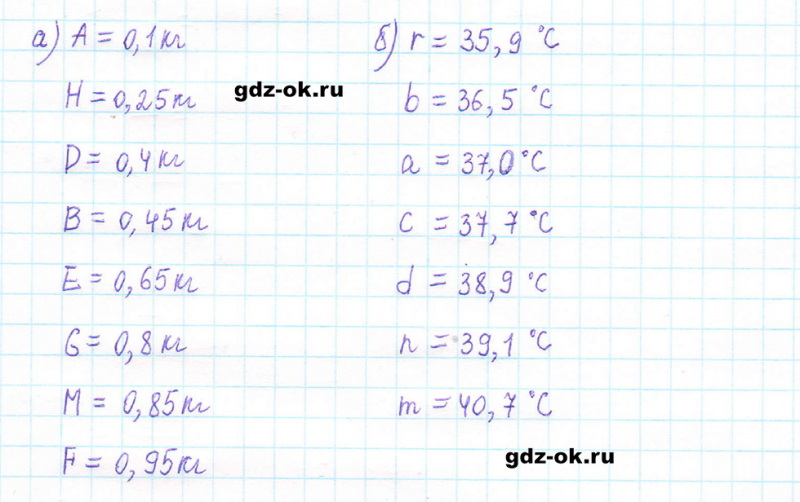 а) A = 0,1 кг
H = 0,25 кг
D = 0,4 кг
B = 0,45 кг
E = 0,65 кг
G = 0,8 кг
M = 0,85 кг
F = 0,95 кг
б) r = 35,9 °C
b = 36,5 °C
a = 37,0 °C
c = 37,7 °C
d = 38,9 °C
n = 39,1 °C
m = 40,7 °C
gdz-ok.ru
gdz-ok.ru